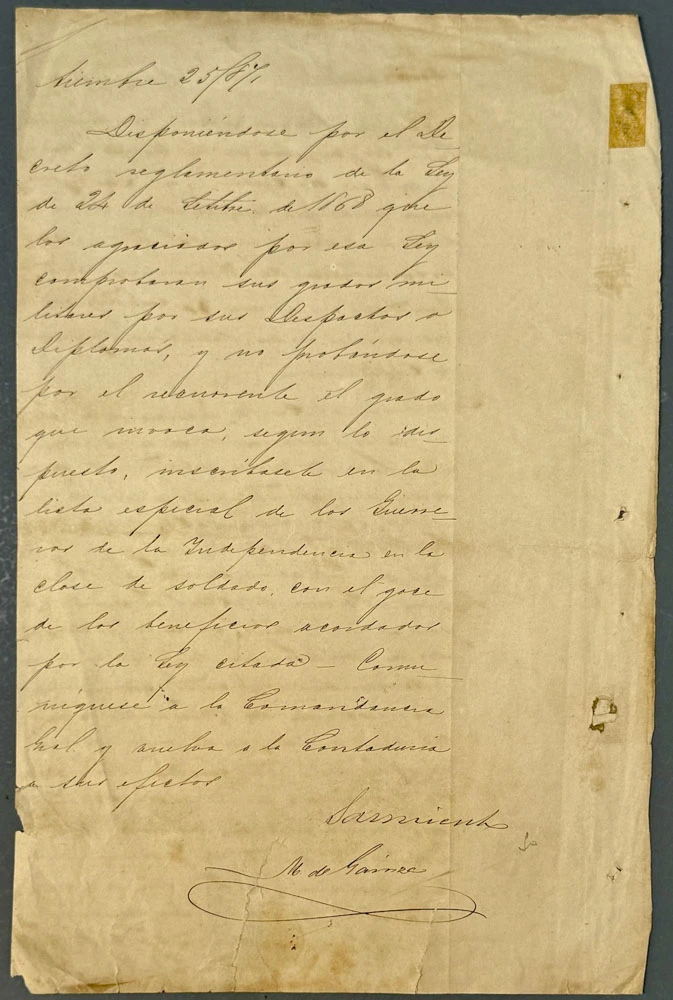 tiembre 25/871
Disponiéndose por el De
creto reglamentario de la Ley
de 24 de Setbre. de 1868 que
los agraciados por esa Ley
comprobaran sus grados mi_
litares por sus Despachos o
Diplomas, y no probándose
por el recurrente el grado
que invoca, segun lo dis_
puesto, inscríbasele en la
lista especial de los Guerre_
ros de la Independencia en la
clase de soldado, con el goce
de los beneficios acordados
por la Ley citada – Comu_
níquese a la Comandancia
Gral y vuelva a la Contaduria
a sus efectos
Sarmiento
M de Gainza